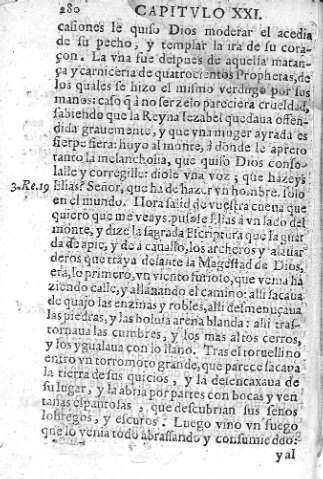 280 CAPITVLO XXI.
casiones le quiso Dios moderar el acedia
de su pecho, y templar la ira de su cora-
çon. La vna fue despues de aquella matan-
ça y carniceria de quatrocientos Prophetas, de
los quales se hizo el mismo verdugo por sus
manos: caso q̃ à no ser zelo pareciera crueldad,
sabiendo que la Reyna Iezabel quedaua offen-
dida grauemente, y que vna muger ayrada es
sierpe fiera: huyo al monte, à donde le apreto
tanto la melancholia, que quiso Dios conso-
lalle y corregille: diole vna voz, que hazeys
3.Re.19 Elias? Señor, que ha de hazer vn hombre solo
en el mundo. Hora salid de vuestra cueua que
quiero que me veays. pusose Elias à vn lado del
monte, y dize la sagrada Escriptura que la guar
da de apie, y de á cauallo, los archeros y alauar
deros que traya delante la Magestad de Dios,
era, lo primero, vn viento furioso, que venia ha
ziendo calle, y allanando el camino: alli sacaua
de quajo las enzinas y robles, alli desmenuçaua
las piedras, y las boluia arena blanda: alli tras-
tornaua las cumbres, y los mas altos cerros,
y los ygualaua con lo llano. Tras el toruellino
entro vn torromoto grande, que parece sacava
la tierra de sus quicios, y la desencaxaua de
su lugar, y la abria por partes con bocas y ven
tanas espantosas, que descubrian sus senos
lobregos, y escuros. Luego vino vn fuego
que lo venia todo abrassando y consumiẽdo:
y al